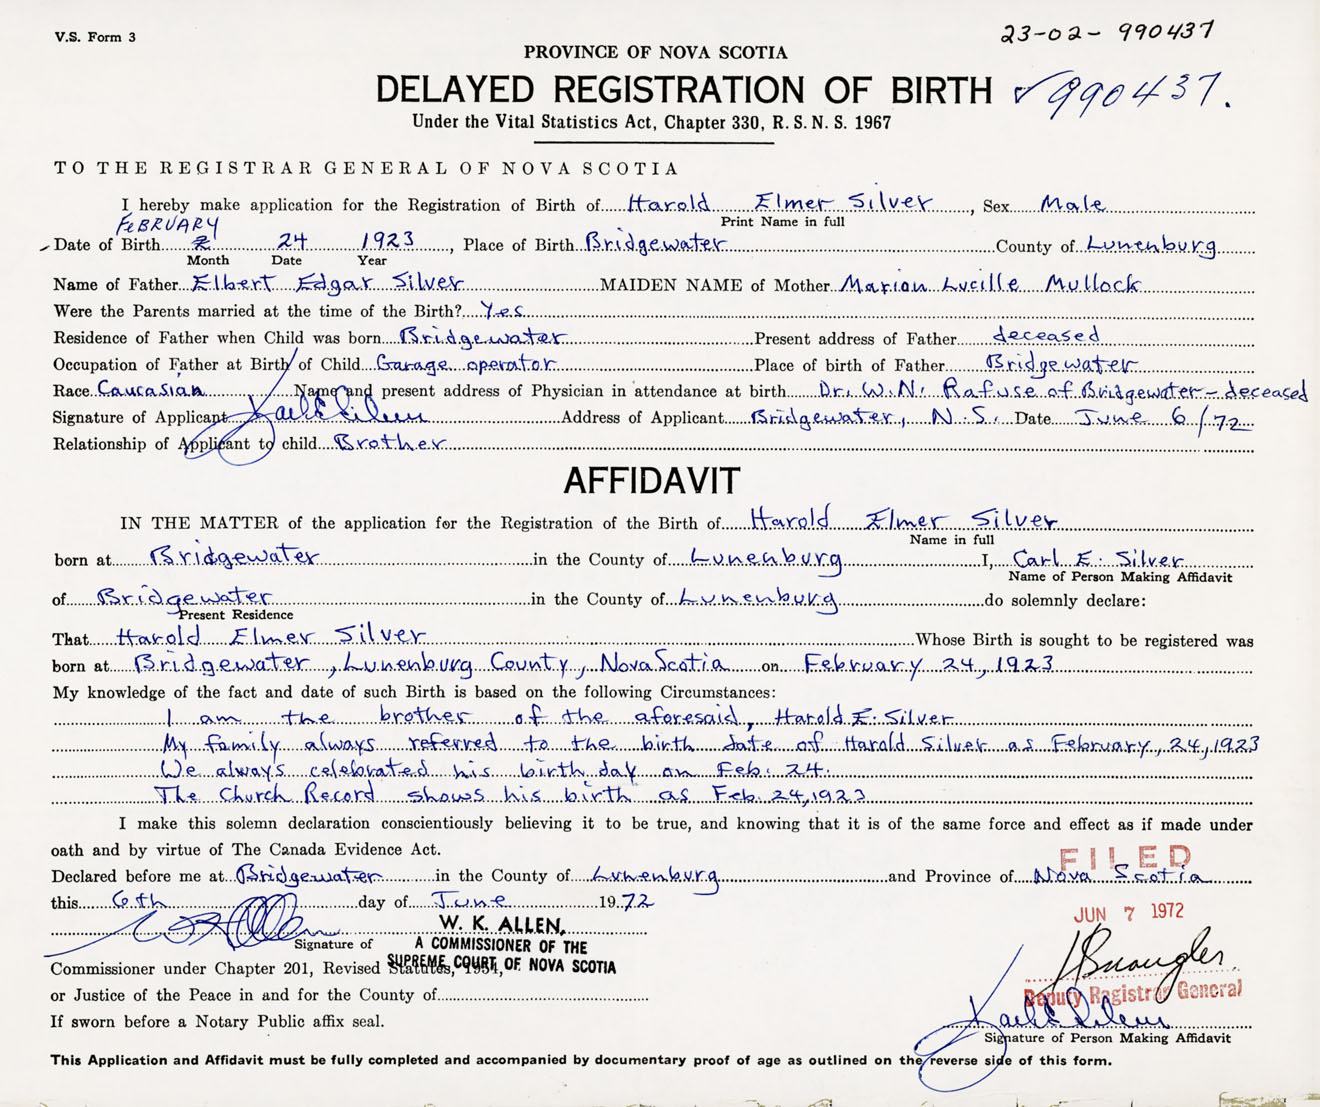 V.S. Form 3
23-02-990437
PROVINCE OF NOVA SCOTIA
DELAYED REGISTRATION OF BIRTH ✓990437.
Under the Vital Statistics Act, Chapter 330, R.S.N.S. 1967
TO THE REGISTRAR GENERAL OF NOVA SCOTIA
I hereby make application for the Registration of Birth of Harold Elmer Silver, Sex Male
Print Name in full
FEBRUARY
Date of Birth 24 1923, Place of Birth Bridgewater County of Lunenburg
Month Date Year
Name of Father Elbert Edgar Silver MAIDEN NAME of Mother Marion Lucille Mullock
Were the Parents married at the time of the Birth? Yes
Residence of Father when Child was born Bridgewater Present address of Father deceased
Occupation of Father at Birth of Child Garage operator Place of birth of Father Bridgewater
Race Caucasian Name and present address of Physician in attendance at birth Dr. W.N. Rafuse of Bridgewater - deceased
Signature of Applicant Address of Applicant Bridgewater, N.S. Date June 6/72
Relationship of Applicant to child Brother
AFFIDAVIT
IN THE MATTER of the application for the Registration of the Birth of Harold Elmer Silver
Name in full
born at Bridgewater in the County of Lunenburg I, Carl E. Silver
Name of Person Making Affidavit
of Bridgewater in the County of Lunenburg do solemnly declare:
Present Residence
That Harold Elmer Silver Whose Birth is sought to be registered was
born at Bridgewater, Lunenburg County, Nova Scotia on February 24, 1923
My knowledge of the fact and date of such Birth is based on the following Circumstances:
I am the brother of the aforesaid, Harold E. Silver
My family always referred to the birth date of Harold Silver as February, 24, 1923
We always celebrated his birth day on Feb. 24.
The Church Record shows his birth as Feb. 24, 1923
I make this solemn declaration conscientiously believing it to be true, and knowing that it is of the same force and effect as if made under
oath and by virtue of The Canada Evidence Act.
FILED
Declared before me at Bridgewater in the County of Lunenburg and Province of Nova Scotia
this 6th day of June 1972
JUN 7 1972
W. K. ALLEN,
Signature of A COMMISSIONER OF THE
SUPREME COURT OF NOVA SCOTIA
Commissioner under Chapter 201, Revised Statutes, 1954,
Deputy Registrar General
or Justice of the Peace in and for the County of
If sworn before a Notary Public affix seal.
Signature of Person Making Affidavit
This Application and Affidavit must be fully completed and accompanied by documentary proof of age as outlined on the reverse side of this form.